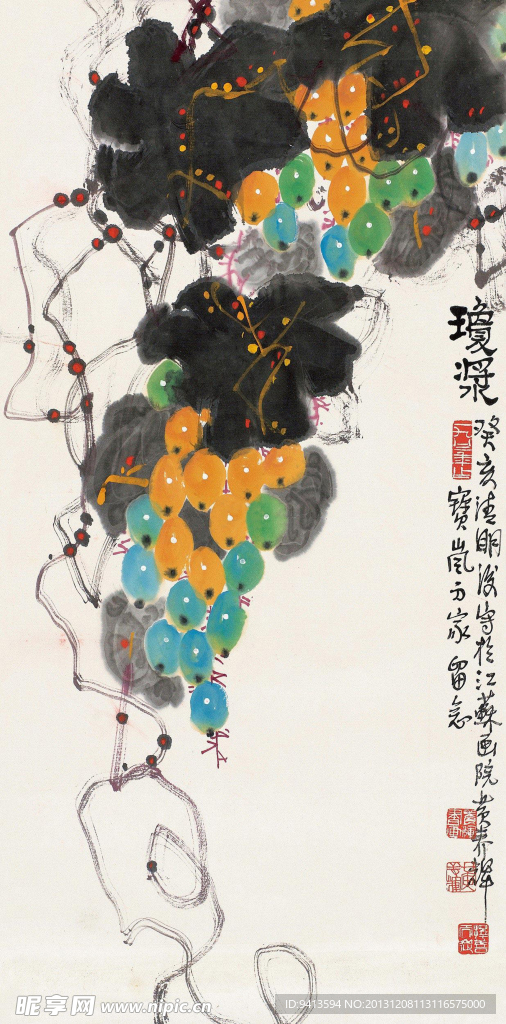 瓊漿
癸亥清明後寫於江蘇画院黄养辉
寶嵐方家留念
昵享网 www.nipic.cn
ID:9413594 NO:20131208113116575000